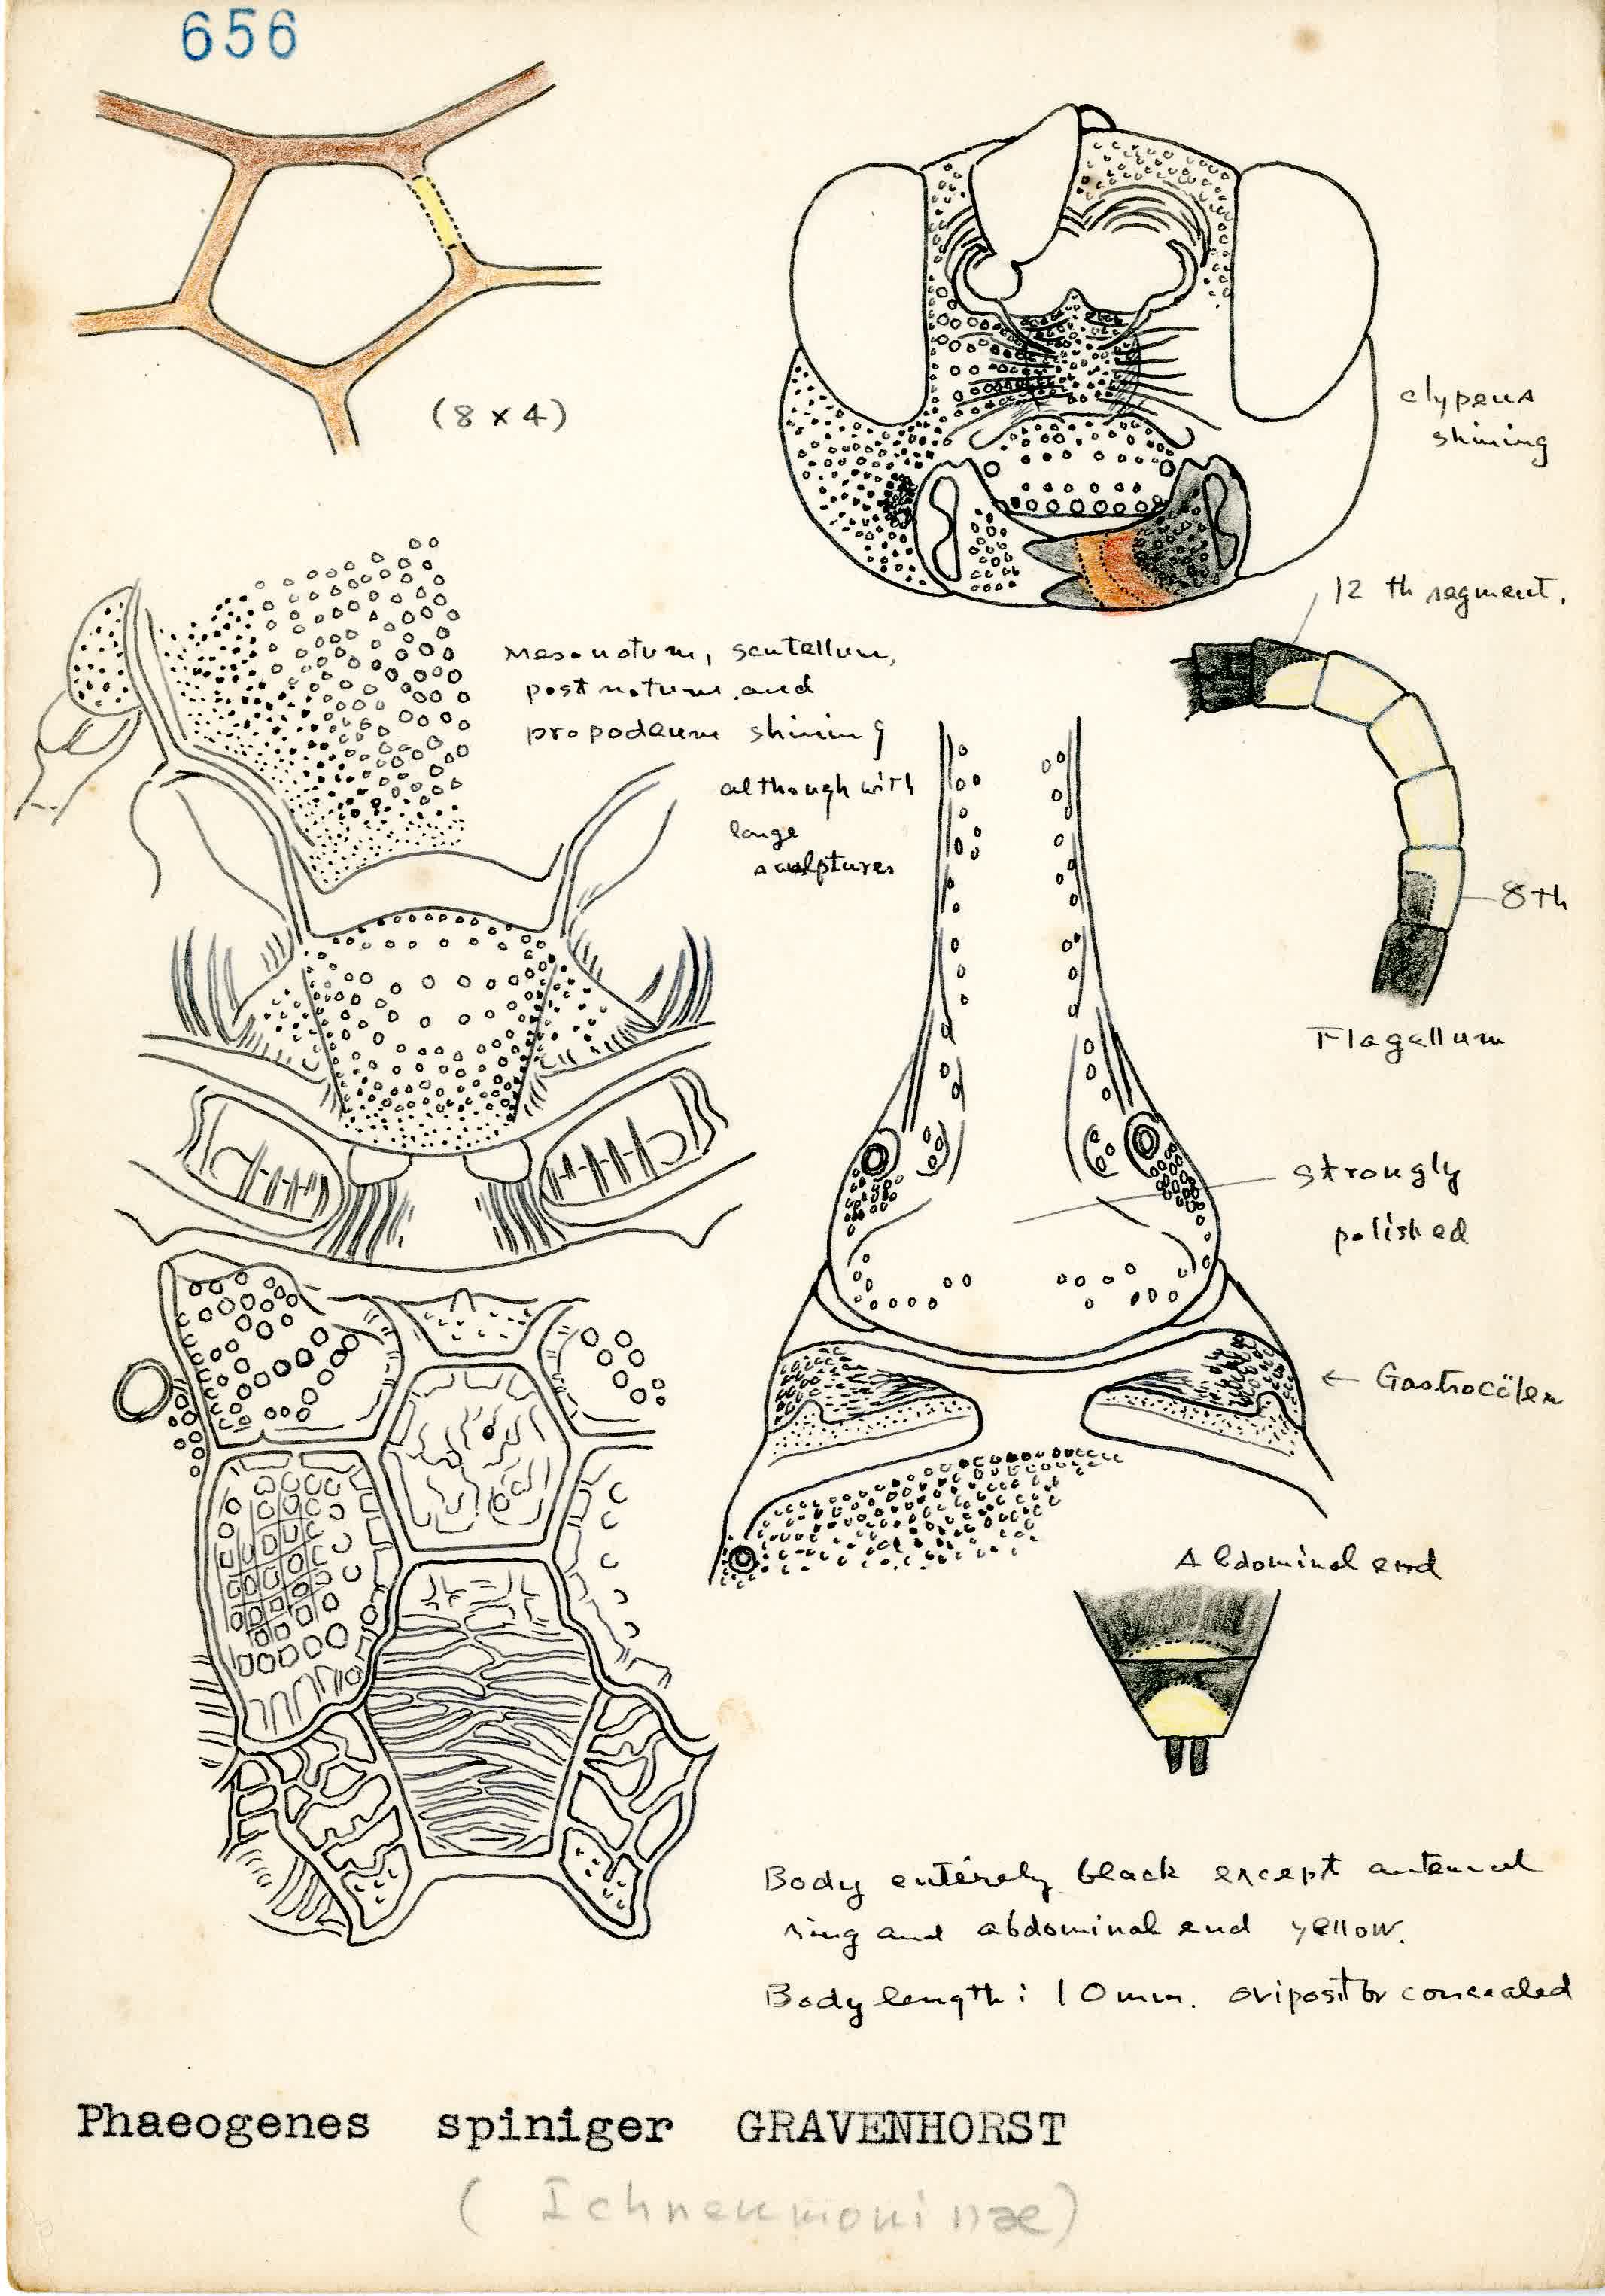 656
(8 x 4)
clypeus
shining
12 th segment.
mesonotum, scutellum,
postnotum and
propodeum shining
although with
large
sculptures
8th
Flagellum
strongly
polished
← Gastrocölen
Abdominal end
Body entirely black except antennal
ring and abdominal end yellow.
Body length: 10mm. ovipositor concealed
Phaeogenes spiniger GRAVENHORST
(Ichneumoninae)